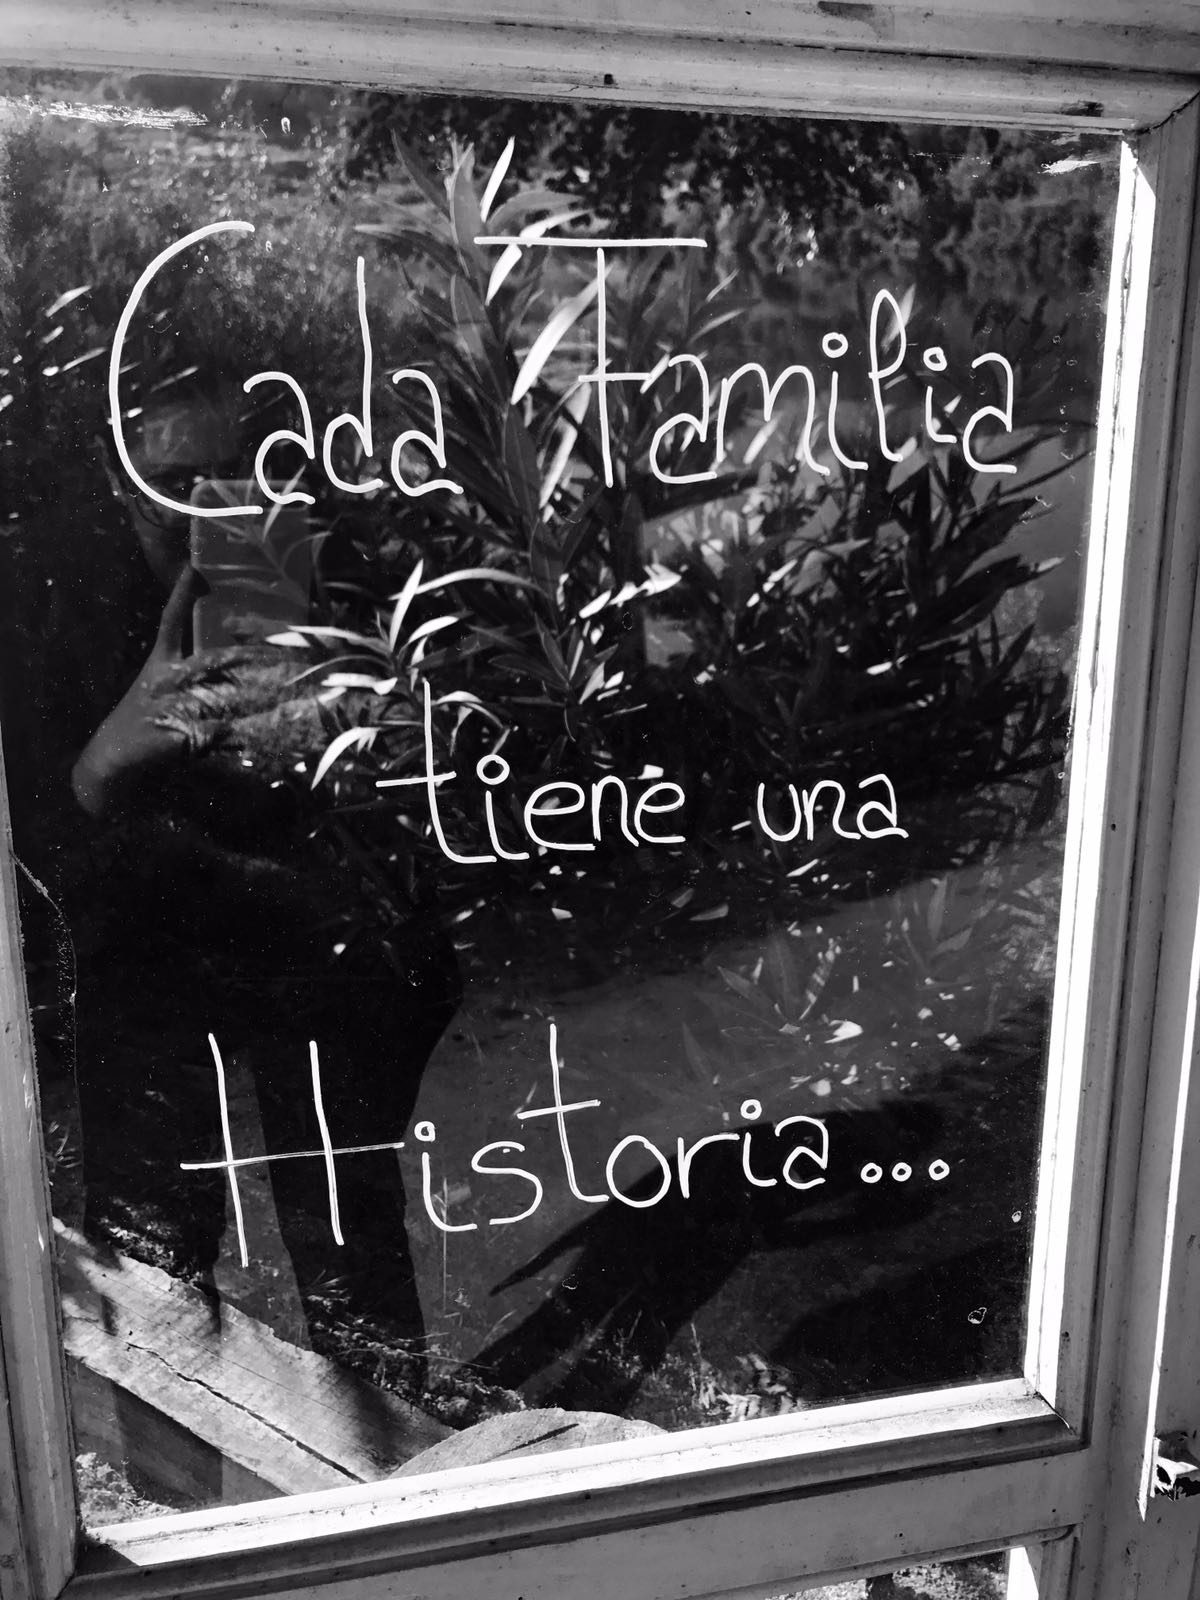 Cada Familia
tiene una
Historia...